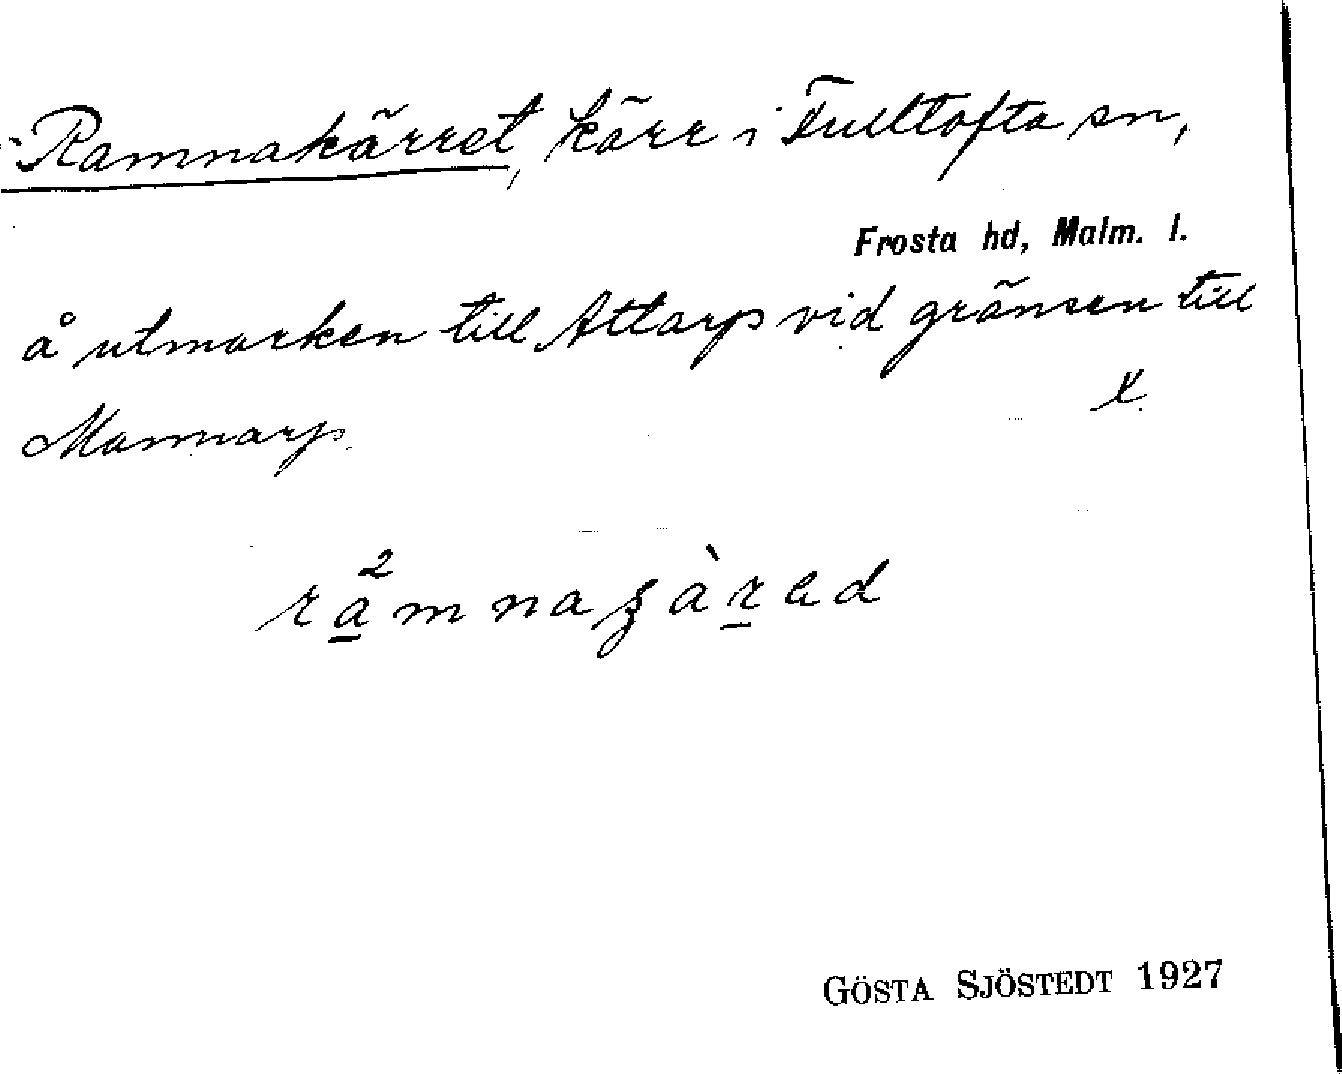 Ramnakärret, kärr i Fulltofta sn,
Frosta hd, Malm. l.
å utmarken till Attarp vid gränsen till
Mannarp.
GÖSTA SJÖSTEDT 1927